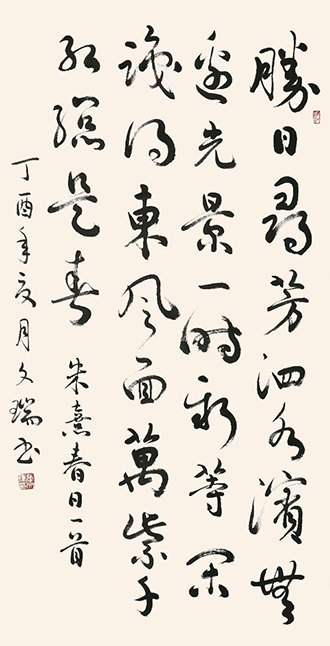 勝日尋芳泗水濱無
邊光景一時新等閑
識得東風面萬紫千
紅總是春 朱熹春日一首
丁酉年夏月文瑞书